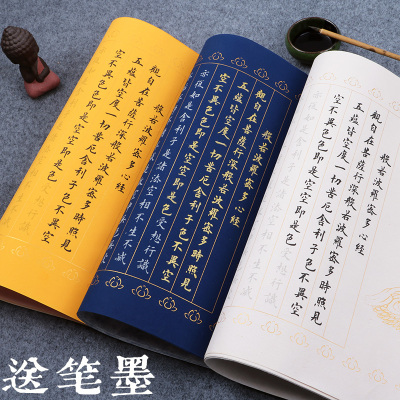 般若波羅蜜多心經
觀自在菩薩行深般若波羅蜜多時照見
五蘊皆空度一切苦厄舍利子色不異空
空不異色色即是空空即是色
般若波羅蜜多心經
觀自在菩薩行深般若波羅蜜多時照見
五蘊皆空度一切苦厄舍利子色不異空
空不異色色即是空空即是色受想行識
亦復如是舍利子是諸法空相不生不滅
觀自在菩薩行深般若波羅蜜多時照見
五蘊皆空度一切苦厄舍利子色不異空
空不異色色即是空空即是色
送笔墨